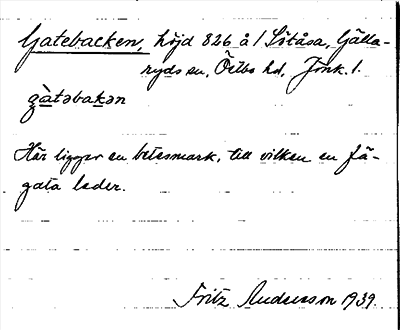 Gatebacken, höjd 826 å 1 Sötåsa, Gälla-
ryds sn, Östbo hd, Jönk. l.
gàtəbakən
Här ligger en betesmark, till vilken en fä-
gata leder.
Fritz Andersson 1939.